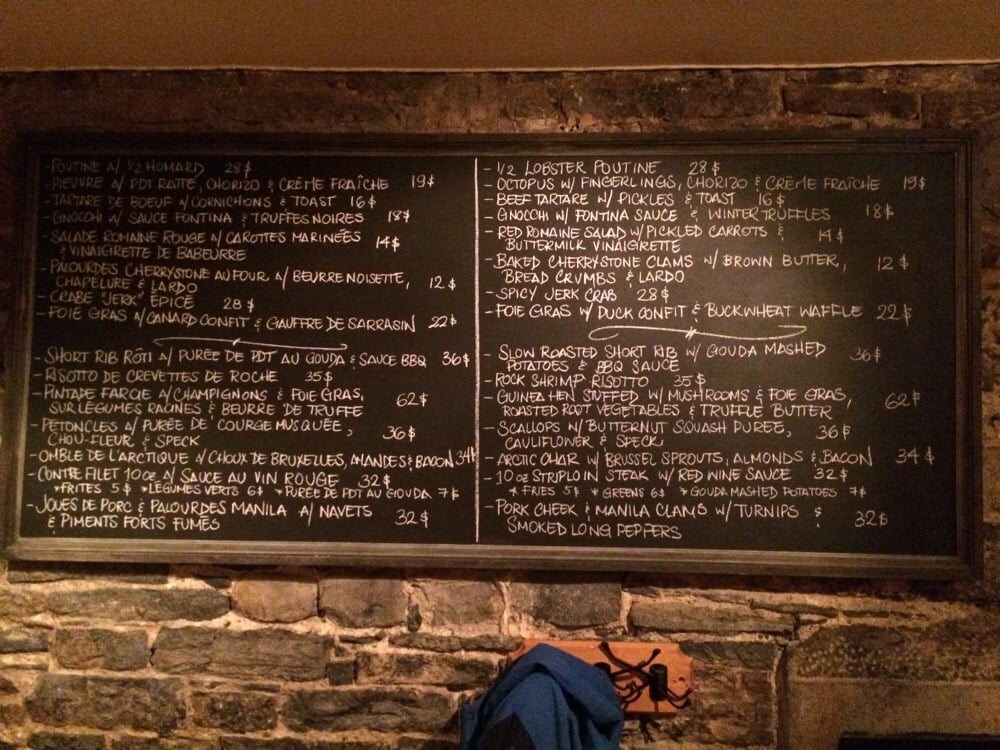 - POUTINE A/ 1/2 HOMARD 28$
- PIEUVRE A/ PDT RATTE, CHORIZO & CRÈME FRAÎCHE 19$
- TARTARE DE BOEUF A/ CORNICHONS & TOAST 16$
- GNOCCHI A/ SAUCE FONTINA & TRUFFES NOIRES 18$
- SALADE ROMAINE ROUGE A/ CAROTTES MARINÉES 14$
& VINAIGRETTE DE BABEURRE
- PALOURDES CHERRYSTONE AU FOUR A/ BEURRE NOISETTE, 12$
CHAPELURE & LARDO
- CRABE "JERK" ÉPICÉ 28$
- FOIE GRAS A/ CANARD CONFIT & GAUFFRE DE SARRASIN 22$
- SHORT RIB RÔTI A/ PURÉE DE PDT AU GOUDA & SAUCE BBQ 36$
- RISOTTO DE CREVETTES DE ROCHE 35$
- PINTADE FARCIE A/ CHAMPIGNONS & FOIE GRAS, 62$
SUR LÉGUMES RACINES & BEURRE DE TRUFFE
- PÉTONCLES A/ PURÉE DE COURGE MUSQUÉE, 36$
CHOU-FLEUR & SPECK
- OMBLE DE L'ARCTIQUE A/ CHOUX DE BRUXELLES, AMANDES & BACON 34$
- CONTRE FILET 10oz A/ SAUCE AU VIN ROUGE 32$
*FRITES 5$ *LÉGUMES VERTS 6$ *PURÉE DE PDT AU GOUDA 7$
- JOUES DE PORC & PALOURDES MANILA A/ NAVETS 32$
& PIMENTS FORTS FUMÉS
- 1/2 LOBSTER POUTINE 28$
- OCTOPUS W/ FINGERLINGS, CHORIZO & CRÈME FRAÎCHE 19$
- BEEF TARTARE W/ PICKLES & TOAST 16$
- GNOCCHI W/ FONTINA SAUCE & WINTER TRUFFLES 18$
- RED ROMAINE SALAD W/ PICKLED CARROTS & 14$
BUTTERMILK VINAIGRETTE
- BAKED CHERRYSTONE CLAMS W/ BROWN BUTTER, 12$
BREAD CRUMBS & LARDO
- SPICY JERK CRAB 28$
- FOIE GRAS W/ DUCK CONFIT & BUCKWHEAT WAFFLE 22$
- SLOW ROASTED SHORT RIB W/ GOUDA MASHED 36$
POTATOES & BBQ SAUCE
- ROCK SHRIMP RISOTTO 35$
- GUINEA HEN STUFFED W/ MUSHROOMS & FOIE GRAS, 62$
ROASTED ROOT VEGETABLES & TRUFFLE BUTTER
- SCALLOPS W/ BUTTERNUT SQUASH PURÉE, 36$
CAULIFLOWER & SPECK
- ARCTIC CHAR W/ BRUSSEL SPROUTS, ALMONDS & BACON 34$
- 10oz STRIPLOIN STEAK W/ RED WINE SAUCE 32$
*FRIES 5$ *GREENS 6$ *GOUDA MASHED POTATOES 7$
- PORK CHEEK & MANILA CLAMS W/ TURNIPS & 32$
SMOKED LONG PEPPERS